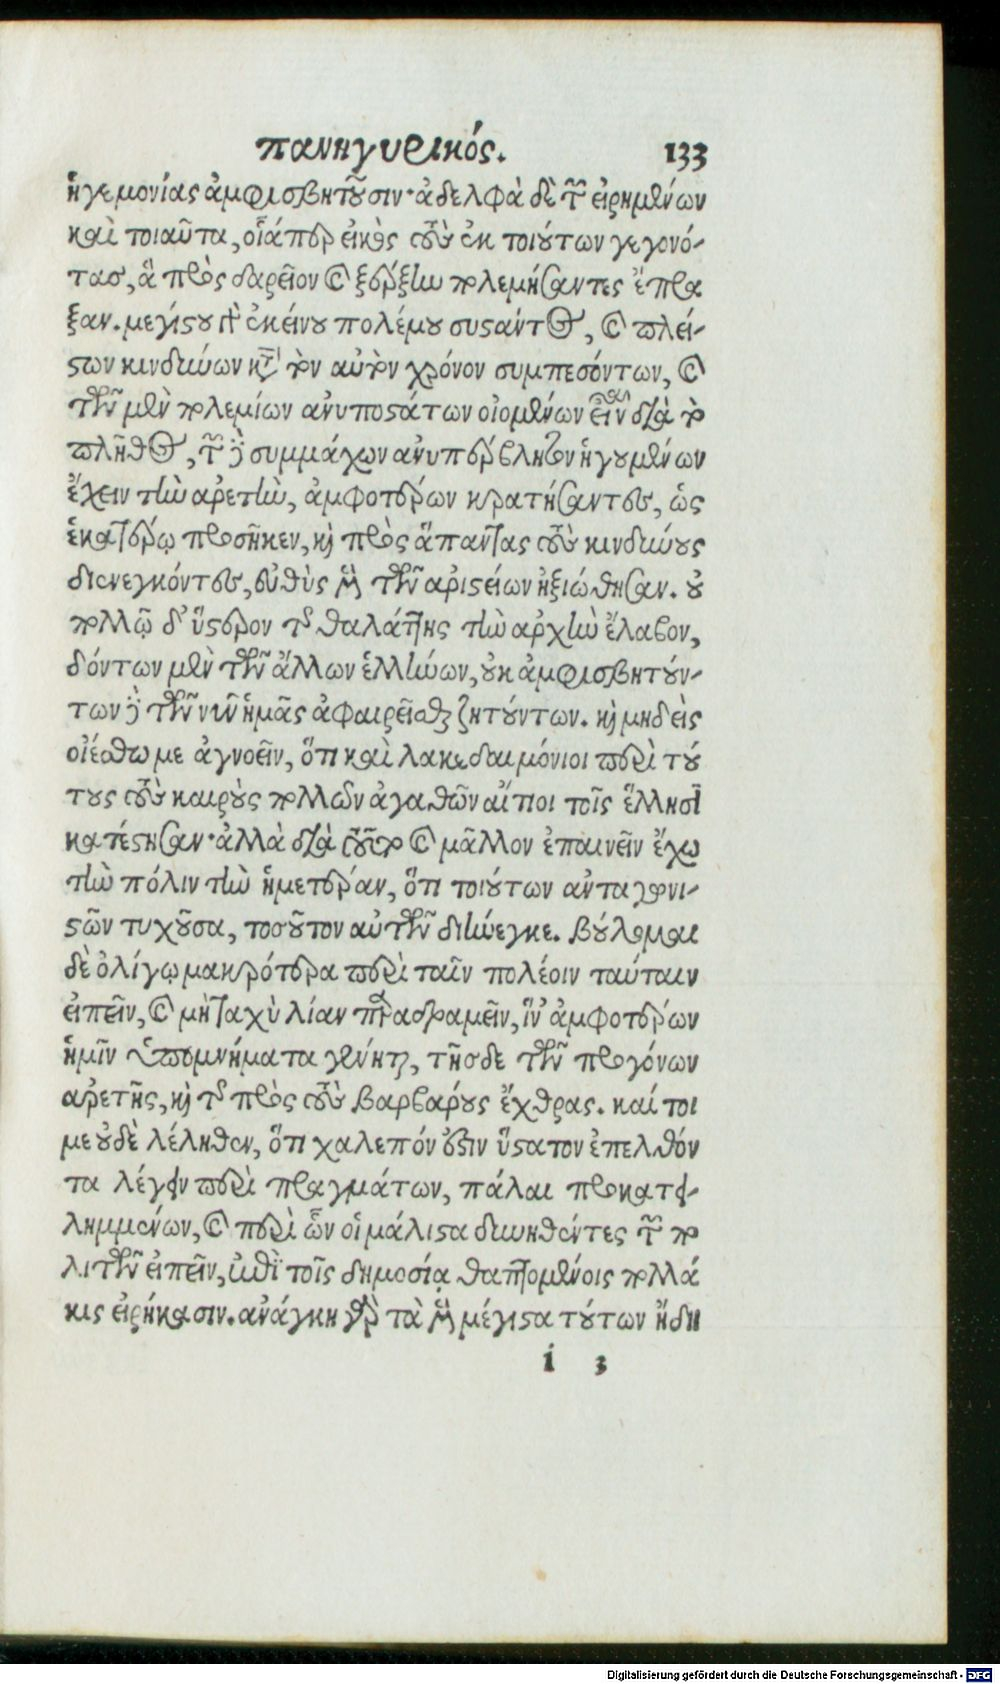 πανηγυρικός. 133
ἡγεμονίας ἀμφισβητοῦσιν· ἀδελφὰ δὲ τῶν εἰρημένων
καὶ τοιαῦτα, οἷάπερ εἰκὸς τοὺς ἐκ τοιούτων γεγονό-
τας, ἃ πρὸς δαρεῖον καὶ ξέρξην πολεμήσαντες ἔπρα
ξαν. μεγίστου γὰρ ἐκείνου πολέμου συστάντος, καὶ πλεί-
στων κινδύνων κατὰ τὸν αὐτὸν χρόνον συμπεσόντων, καὶ
τῶν μὲν πολεμίων ἀνυποστάτων οἰομένων εἶναι διὰ τὸ
πλῆθος, τῶν δὲ συμμάχων ἀνυπέρβλητον ἡγουμένων
ἔχειν τὴν ἀρετὴν, ἀμφοτέρων κρατήσαντες, ὡς
ἑκατέρῳ προσῆκεν, καὶ πρὸς ἅπαντας τοὺς κινδύνους
διενεγκόντες, εὐθὺς μὲν τῶν ἀριστείων ἠξιώθησαν. οὐ
πολλῷ δ' ὕστερον τῆς θαλάττης τὴν ἀρχὴν ἔλαβον,
δόντων μὲν τῶν ἄλλων ἑλλήνων, οὐκ ἀμφισβητούν-
των δὲ τῶν νῦν ἡμᾶς ἀφαιρεῖσθαι ζητούντων. καὶ μηδεὶς
οἰέσθω με ἀγνοεῖν, ὅτι καὶ λακεδαιμόνιοι περὶ τού
τους τοὺς καιροὺς πολλῶν ἀγαθῶν αἴτιοι τοῖς ἕλλησι
κατέστησαν· ἀλλὰ διὰ τοῦτο καὶ μᾶλλον ἐπαινεῖν ἔχω
τὴν πόλιν τὴν ἡμετέραν, ὅτι τοιούτων ἀνταγωνι-
στῶν τυχοῦσα, τοσοῦτον αὐτῶν διήνεγκε. βούλομαι
δὲ ὀλίγῳ μακρότερα περὶ ταῖν πολέοιν ταύταιν
εἰπεῖν, καὶ μὴ ταχὺ λίαν παραδραμεῖν, ἵν' ἀμφοτέρων
ἡμῖν ὑπομνήματα γένηται, τῆσδε τῶν προγόνων
ἀρετῆς, καὶ τῆς πρὸς τοὺς βαρβάρους ἔχθρας. καί τοι
με οὐδὲ λέληθεν, ὅτι χαλεπόν ἐστιν ὕστατον ἐπελθόν
τα λέγειν περὶ πραγμάτων, πάλαι προκατει-
λημμένων, καὶ περὶ ὧν οἱ μάλιστα δυνηθέντες τῶν πο
λιτῶν εἰπεῖν, ἐπὶ τοῖς δημοσίᾳ θαπτομένοις πολλά
κις εἰρήκασιν. ἀνάγκη γὰρ τὰ μὲν μέγιστα τούτων ἤδη
i 3
Digitalisierung gefördert durch die Deutsche Forschungsgemeinschaft - DFG